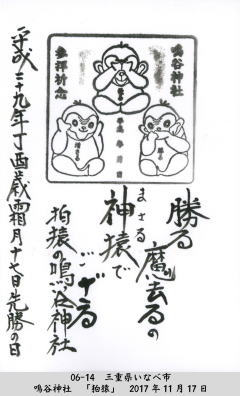 鳴谷神社
参拝祈念
勝る魔去るの
まさる
神猿で
ござる
拍猿の鳴谷神社
平成二十九年丁酉歳霜月十七日先勝の日
06-14 三重県いなべ市
鳴谷神社 「拍猿」 2017年11月17日